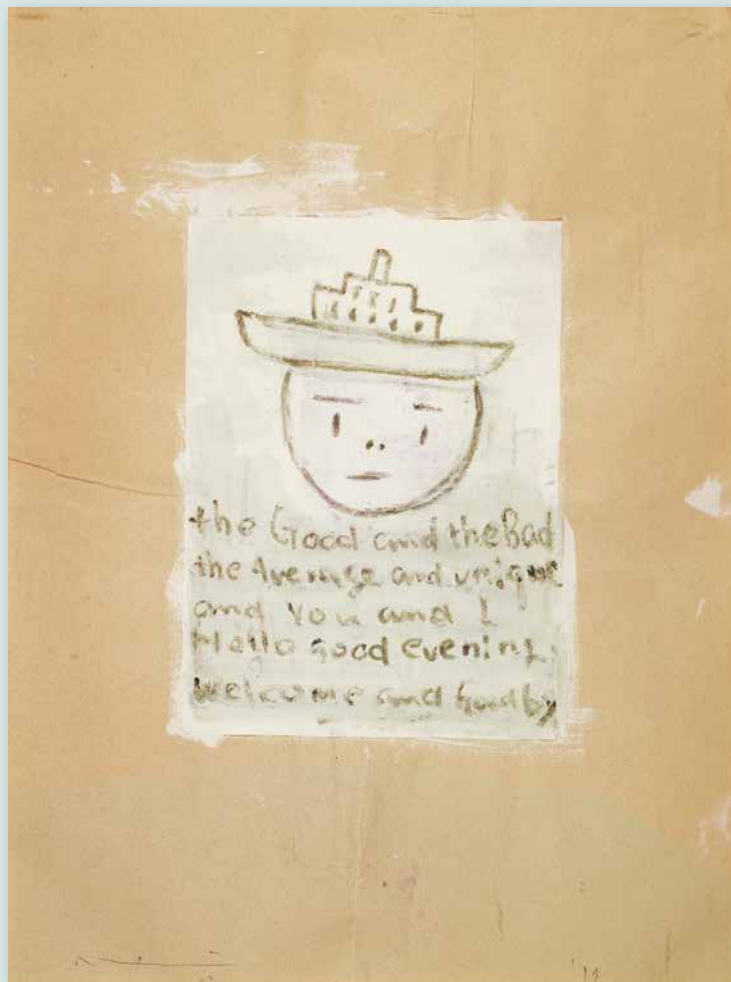 the Good and the Bad
the Average and unique
and You and I
Hello good evening,
welcome and Goodby
'11